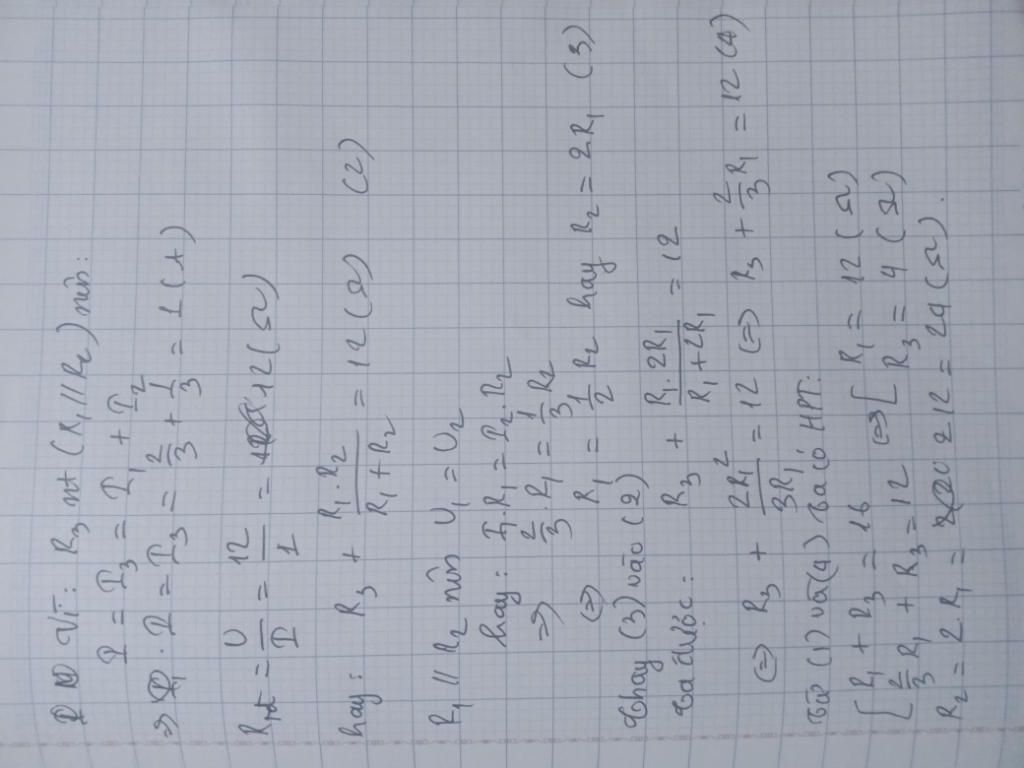 Vì: R3 nt (R1 // R2) nên:
I = I3 = I1 + I2
=> I = I3 = 2/3 + 1/3 = 1 (A)
Rtđ = U/I = 12/1 = 12 (Ω)
hay: R3 + R1.R2/(R1+R2) = 12 (Ω) (2)
R1 // R2 nên U1 = U2
hay: I1.R1 = I2.R2
=> 2/3.R1 = 1/3 R2
<=> R1 = 1/2 R2 hay R2 = 2R1 (3)
Thay (3) vào (2)
ta được: R3 + R1.2R1/(R1+2R1) = 12
<=> R3 + 2R1²/3R1 = 12 <=> R3 + 2/3 R1 = 12 (4)
Từ (1) và (4) ta có HPT:
[ R1 + R3 = 16
[ 2/3 R1 + R3 = 12 <=> [ R1 = 12 (Ω)
[ R3 = 4 (Ω)
R2 = 2.R1 = 2.12 = 24 (Ω).